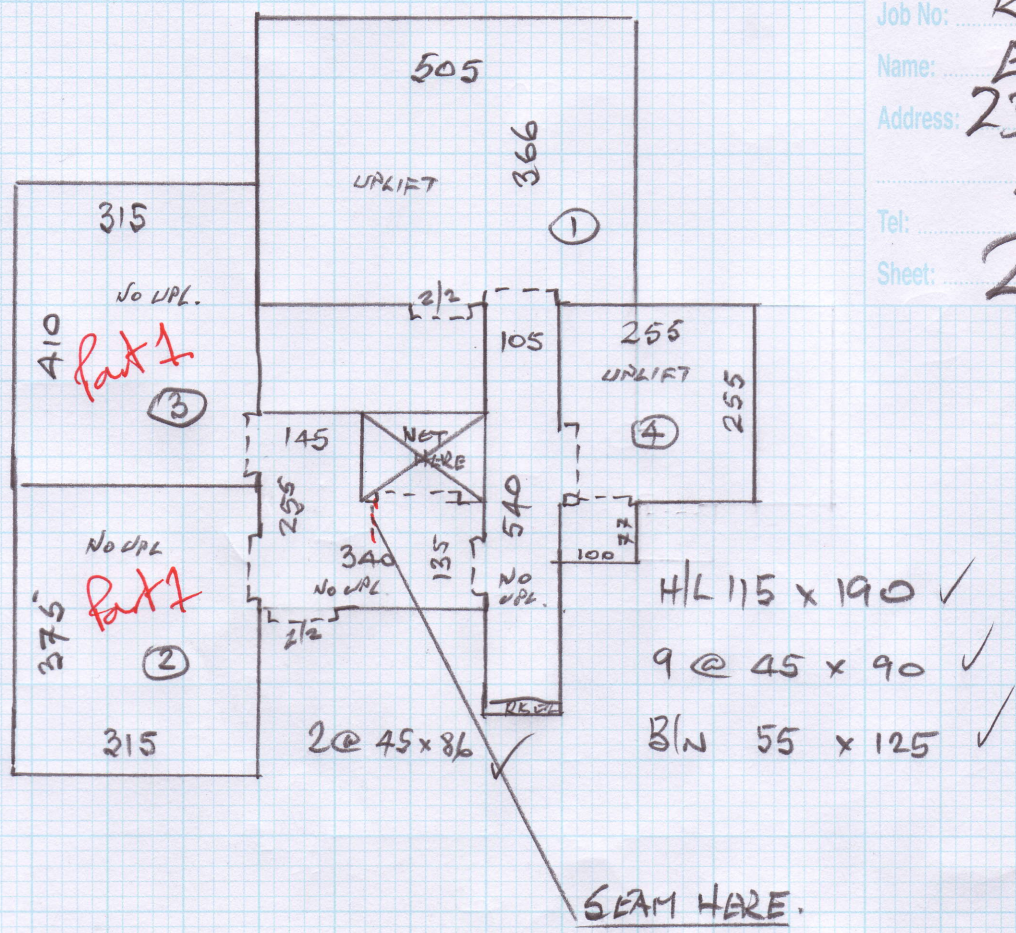 Job No:
Name:
Address: 23
Tel:
Sheet: 2
505
366
UPLIFT
1
315
NO UPL.
410
Part 1
3
2/2
105
255
UPLIFT
255
4
145
NET
HERE
255
540
340
135
NO UPL
NO
UPL.
77
100
NO UPL
Part 1
375
2
315
2/2
H/L 115 x 190 ✓
9 @ 45 x 90 ✓
B/N 55 x 125 ✓
2@ 45x86 ✓
SEAM HERE.